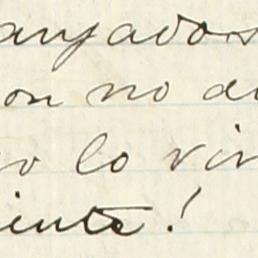 anjados
on no d
o lo viv
iente!